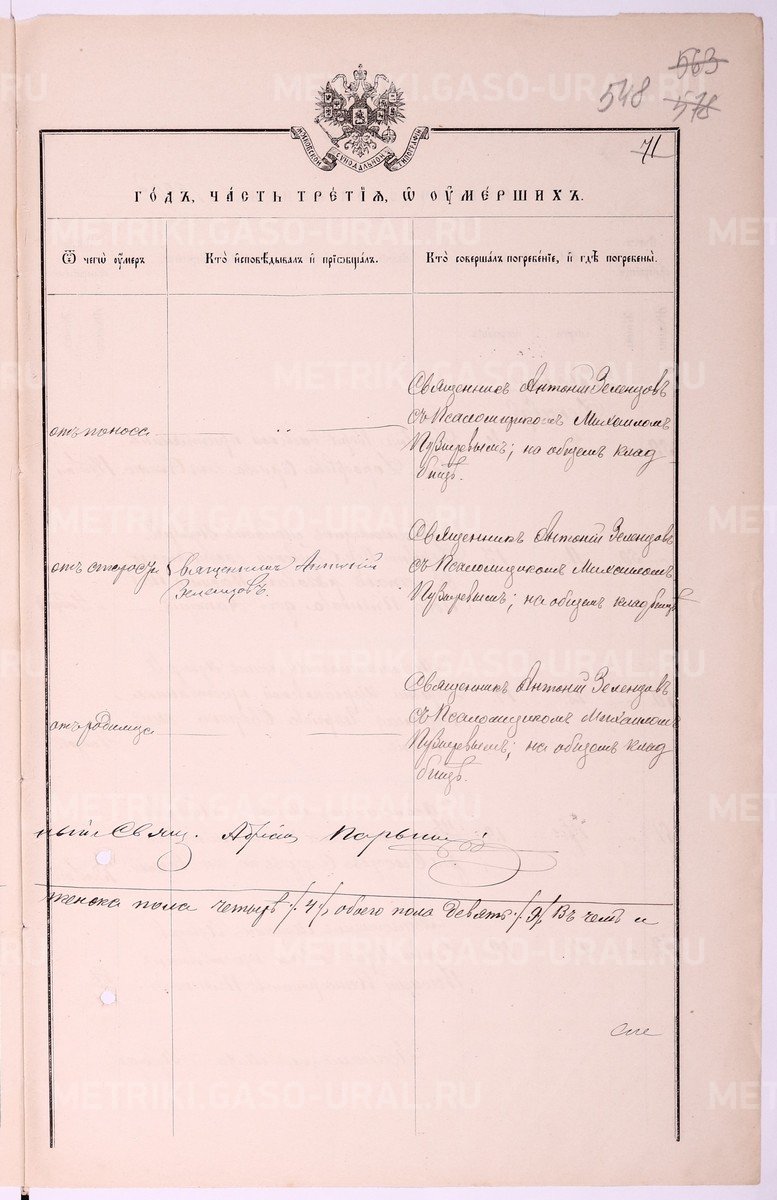 563
548 578
МОСКОВСКОЙ СѴНОДАЛЬНОЙ ТИПОГРАФІИ
71
ГО́ДЪ, ЧА́СТЬ ТРЕ́ТІѦ, Ѿ ОУ҆МЕ́РШИХЪ.
Ѿ чегѡ̀ оу҆́меръ
Кто̀ и҆сповѣ́дывалъ и҆ прїѡбща́лъ.
Кто̀ соверша́лъ погребе́нїе, и҆ гдѣ̀ погребены̀.
отъ поноса
Священникъ Антоній Зеленцовъ
съ Псаломщикомъ Михаиломъ
Пузыревымъ; на общемъ клад
бищѣ.
отъ старости
Священникъ Антоній
Зеленцовъ.
Священникъ Антоній Зеленцовъ
съ Псаломщикомъ Михаиломъ
Пузыревымъ; на общемъ кладбищѣ
отъ родимца
Священникъ Антоній Зеленцовъ
съ Псаломщикомъ Михаиломъ
Пузыревымъ; на общемъ клад
бищѣ.
ный Свящ.
женска пола четыре /4/, обоего пола девять /9/ Въ чемъ и
сіе
METRIKI.GASO-URAL.RU